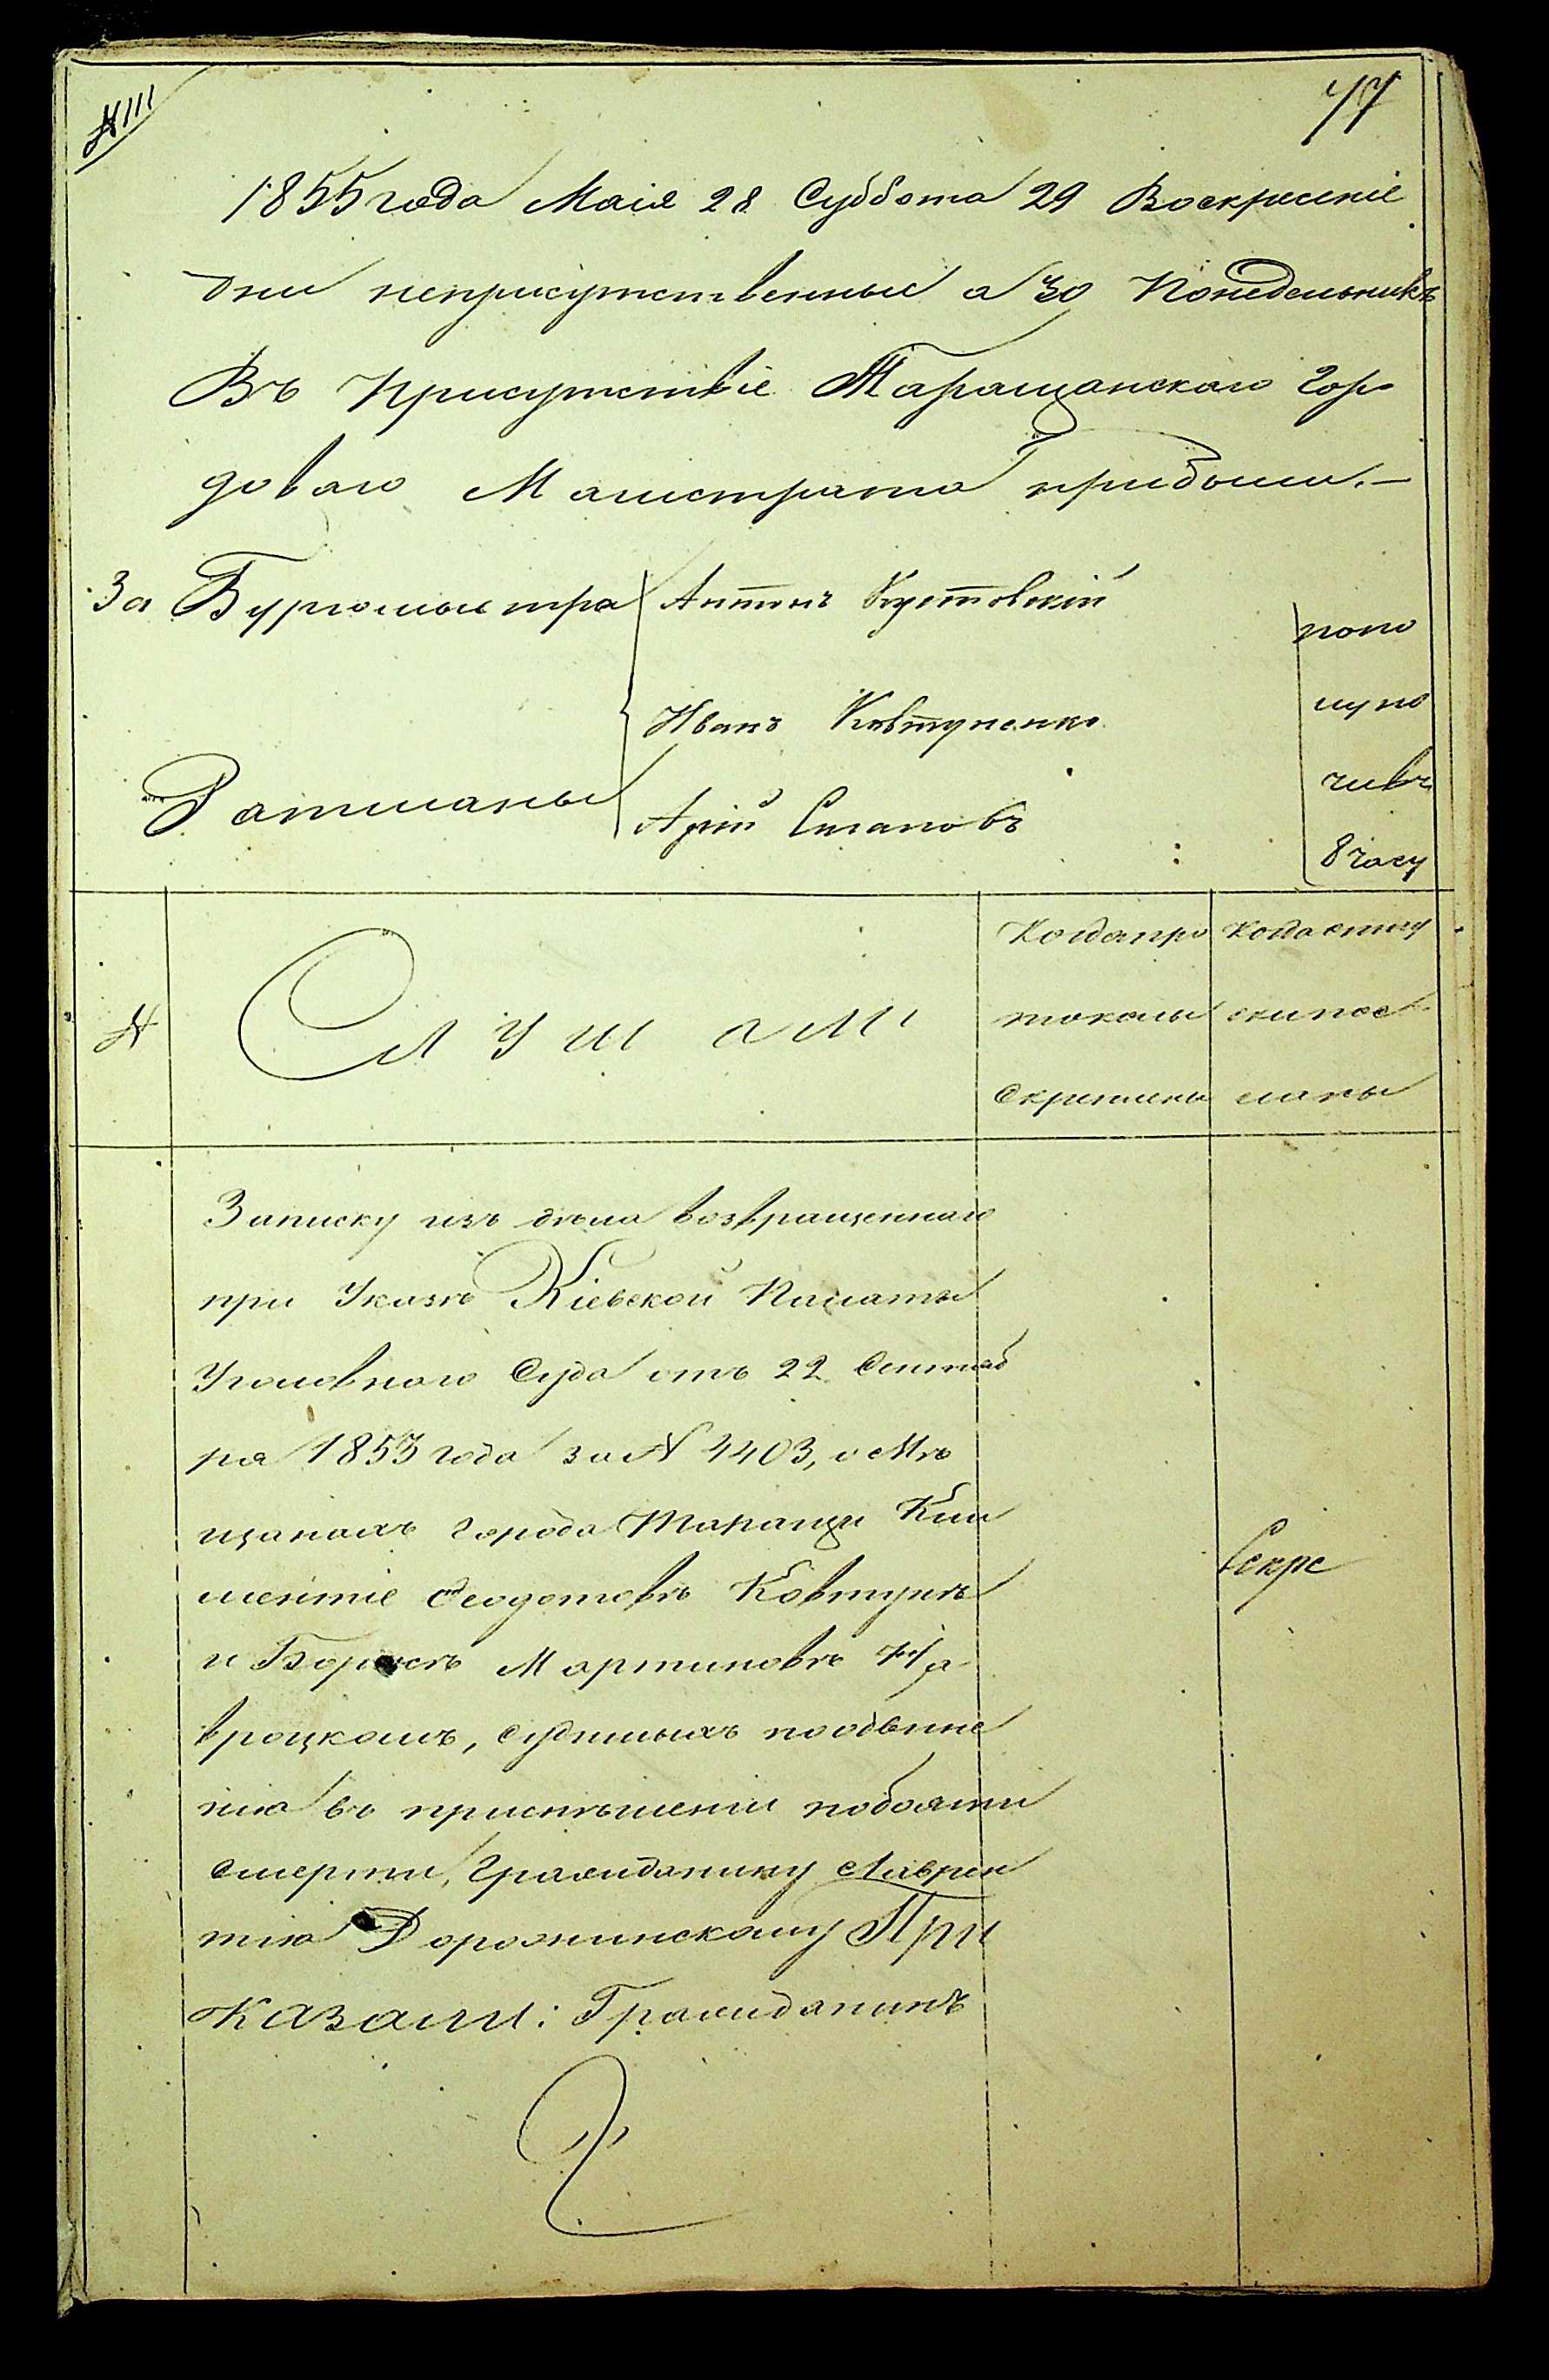 N 111
77
1855 года Маія 28 Суббота 29 Воскресеніе
дни неприсутственные а 30 Понедельникъ
Въ Присутствіе Таращанскаго Горо
доваго Магистрата прибыли.—
За Бургомистра Антонъ
Иванъ Ковтуненко
Ратманы
попо
лупо
8 часу
N
Слушали
Когда про
токолы
скреплены
Когда
Записку изъ дѣла возвращеннаго
при Указѣ Кіевской Палаты
Уголовнаго Суда отъ 22 Сентяб
ря 1853 года за N 4403, о Мѣ
щанахъ города Таращи Кли
ментіе Феодотовѣ Ковтунѣ
и Борисѣ Мартиновѣ На
вроцкомъ, судимыхъ по обвине
нію въ приспѣшеніи побоями
смерти, Гражданину Лаврен
тію Дорожинскому При
казали: Гражданинъ
Секре